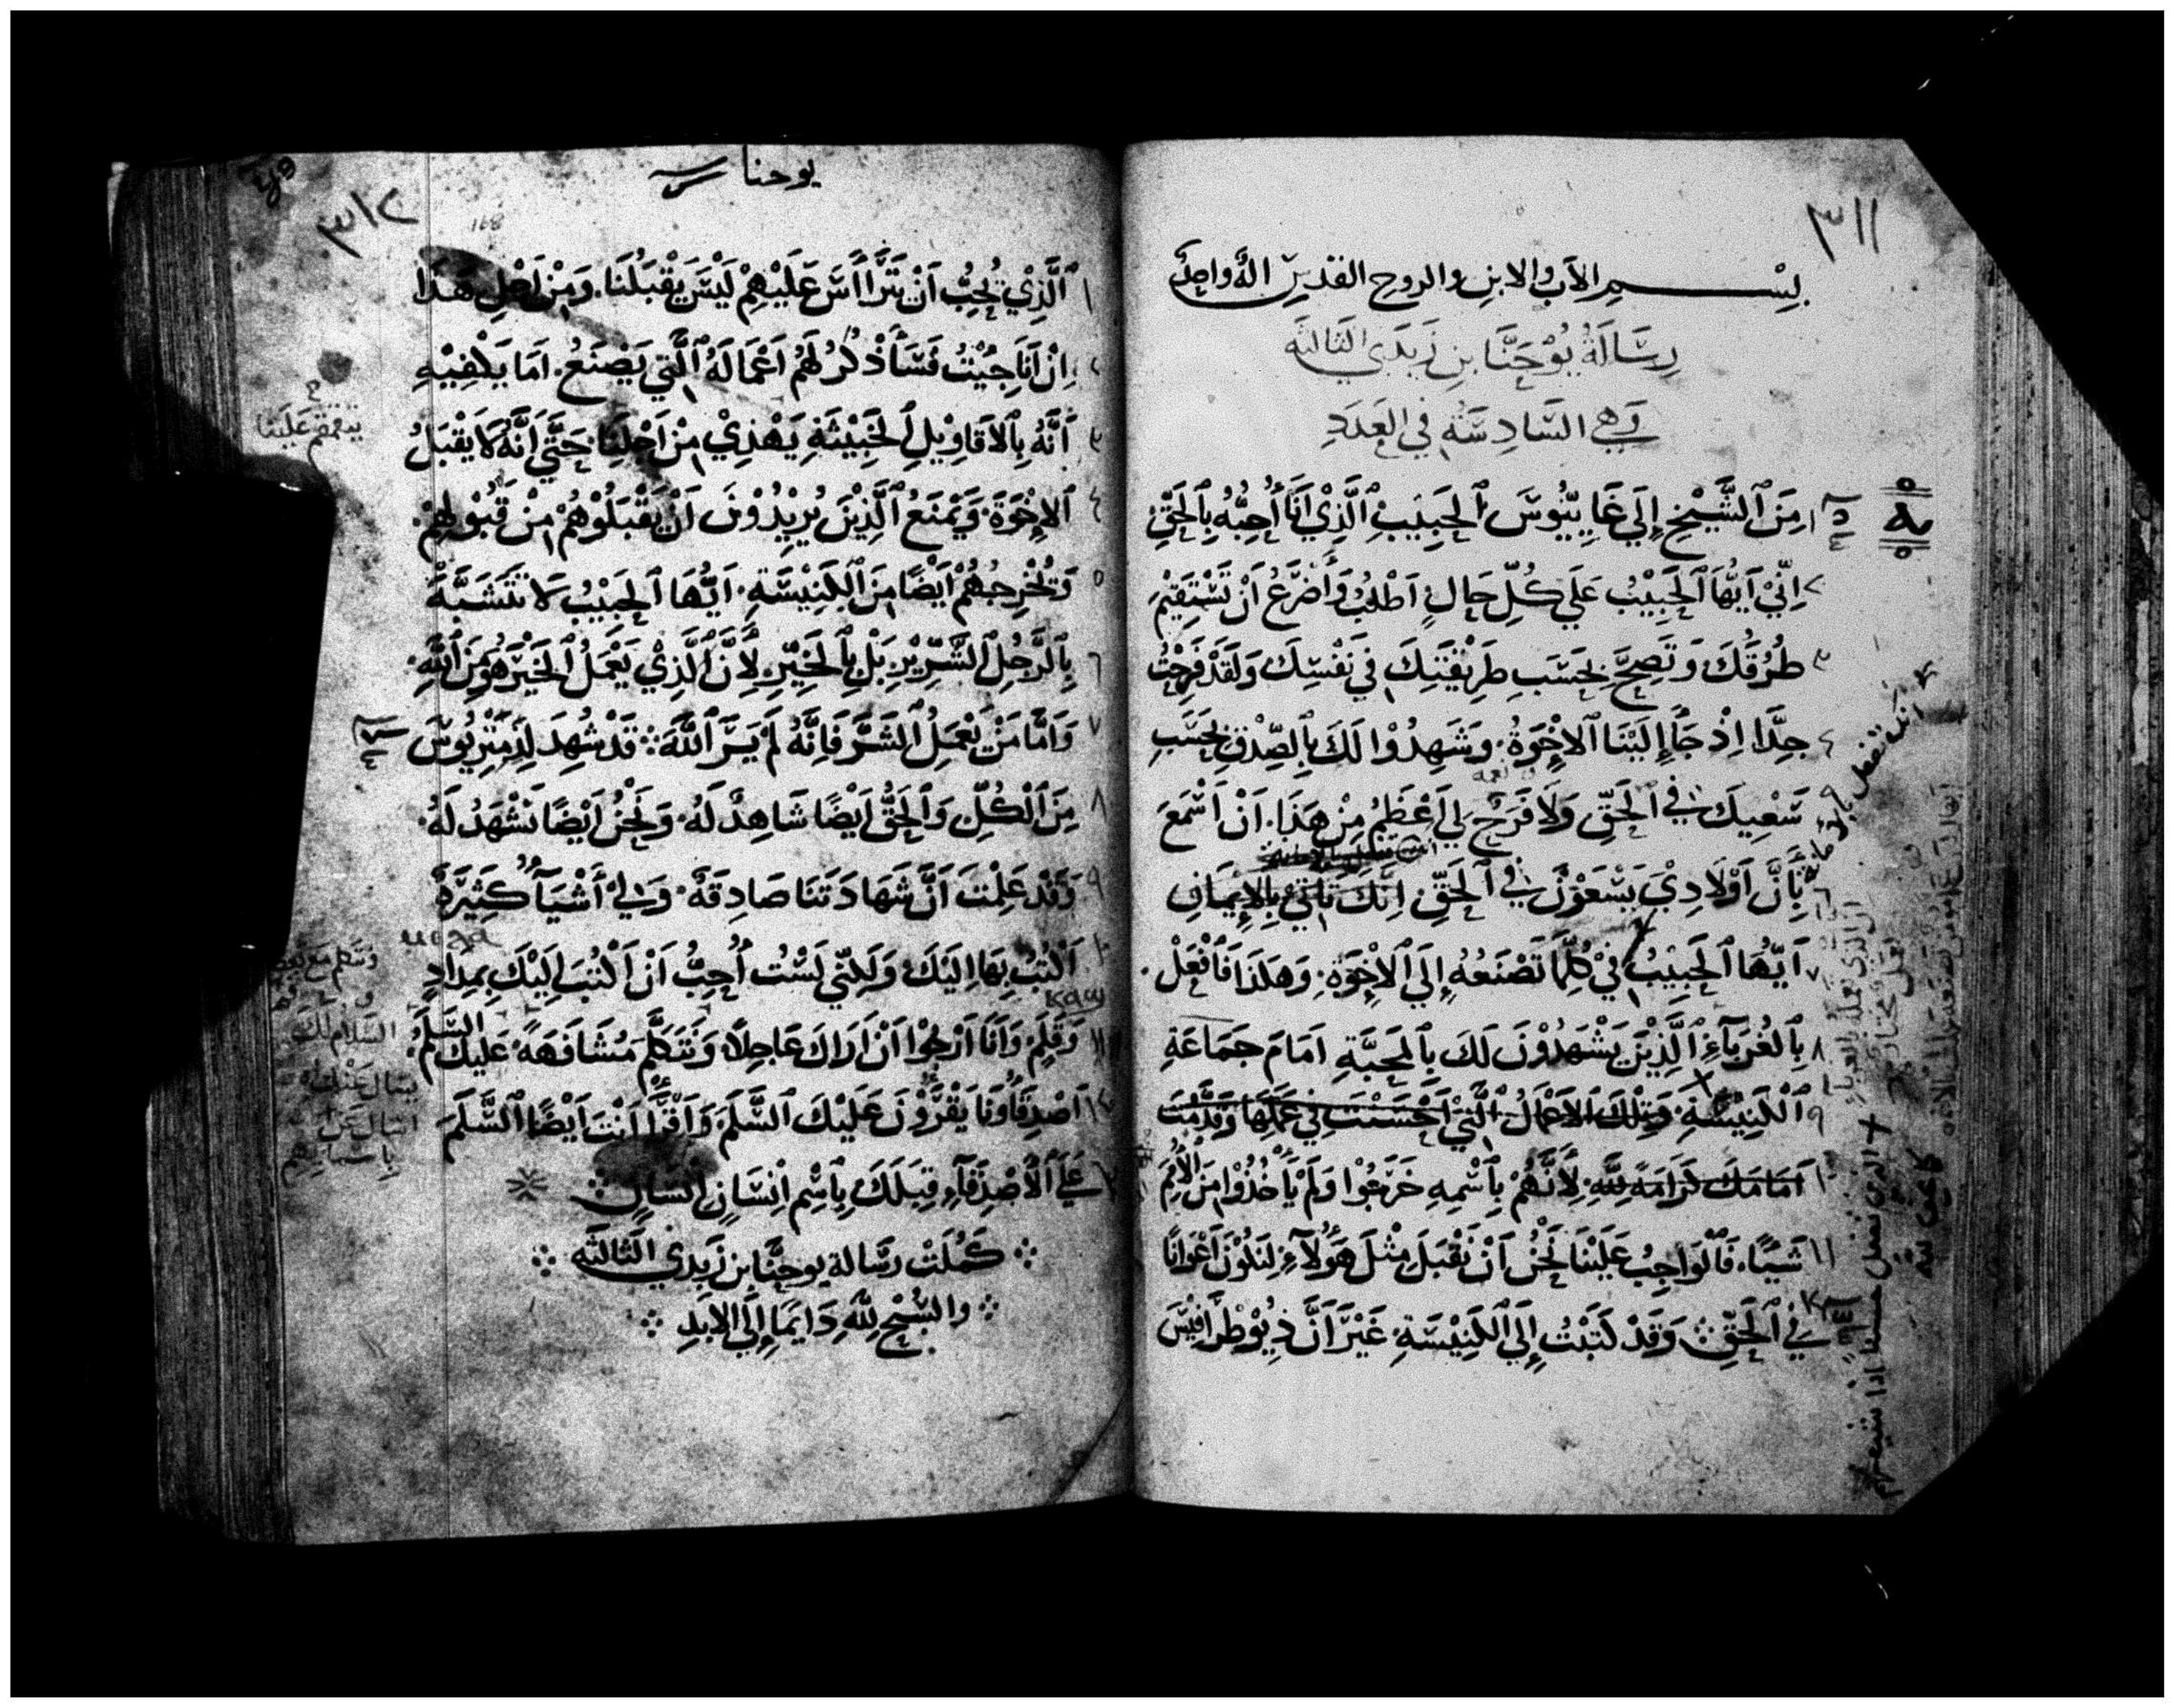 ٣١١
بِسْمِ الآبِ والابنِ والروح القدسِ الهٌ واحدٌ
رِسَالَةُ يُوْحَنَّا بِنِ زَبَدَي الثَالثَه
وَهي السَّادِسَة في العَدَدِ
١ مِنَ ٱلشَّيْخِ إِلَي غَايِيُّوسَ ٱلحَبِيَبِ ٱلَّذِيْ اَنَا أُحِبُّهُ بِٱلحَقِّ
٢ اِنِّيْ اَيُّهَا ٱلحَبِيْبُ عَلَي كُلِّ حَالٍ اَطْلُبُ وَأَضْرَعُ اَنْ تَسْتَقِيْمَ
٣ طُرُقُكَ وَتَصِحَّ بِحَسَبِ طَرِيْقَتِكَ فِي نَفْسِكَ وَلَقَدْ فَرِحْتُ
٤ جِدَّا اِذْ جَأَ إِلَيْنَا ٱلاِخْوَةُ وَشَهِدُوْا لَكَ بِٱلصِّدْقِ بِحَسَبِ
سَعْيِكَ في ٱلحَقِّ وَلَا فَرَحَ لِي اَعْظَمُ مِنْ هَذَا. اَنْ اَسْمَعَ
بِأَنَّ اَوْلَادِيَ يَسْعَوْنَ في ٱلحَقِّ اِنَّكَ تَاتي بِالإِيمَانِ
٧ اَيُّهَا ٱلحَبِيَبُ فِيْ كُلِّمَا تَصْنَعُهُ إِلَي ٱلاِخْوَةِ وَهَكَذَا فَٱفْعَلْ
٨ بِٱلغُرَبَآءِ ٱلَّذِيْنَ يَشْهَدُوْنَ لَكَ بِٱلمَحَبَّةِ اَمَامَ جَمَاعَةِ
٩ ٱلْكَنِيْسَةِ وَتِلْكَ الاَعْمَالُ الَّتِيْ اَحْسَنْتَ فِي عَمَلِهَا وَقَدَّمْتَ
١٠ اَمَامَكَ كَرَامَةً لِلَّهِ لِأَنَّهُمْ بِٱسْمِهِ خَرَجُوْا وَلَمْ يَأْخُذُوْا مِنَ ٱلأُمَمِ
١١ شَيْئًا. فَٱلْوَاجِبُ عَلَيْنَا نَحْنُ اَنْ نَقْبَلَ مِثْلَ هَؤُلَآءِ لِنَكُوْنَ اَعْوَانًا
فِي ٱلحَقِّ وَقَدْ كَتَبْتُ إِلَي ٱلكَنِيْسَةِ غَيْرَ اَنَّ دِيُوْطْرَافِيْسَ
يوحنا
٣١٢
168
١ ٱلَّذِيْ يُحِبُّ اَنْ يَتَرَأَّسَ عَلَيْهِمْ لَيْسَ يَقْبَلُنَا. وَمِنْ اَجْلِ هَذَا
٢ اِنْ اَنَا جِيْتُ فَسَأَذْكُرُ لَهُمْ اَعْمَالَهُ ٱلَّتِي يَصْنَعُ. اَمَا يَكْفِيْهِ
٣ اَنَّهُ بِٱلاَقَاوِيْلِ ٱلخَبِيْثَةِ يَهْذِيْ مِنْ اَجْلِنَا حَتَّي اِنَّهُ لَا يَقْبَلُ
٤ ٱلاِخْوَةَ وَيَمْنَعُ ٱلَّذِيْنَ يُرِيْدُوْنَ اَنْ يَقْبَلُوْهُمْ مِنْ قَبُوْلِهِمْ
٥ وَيُخْرِجُهُمْ اَيْضًا مِنَ ٱلكَنِيْسَةِ. اَيُّهَا ٱلحَبِيْبُ لَا تَتَشَبَّهْ
٦ بِٱلرَّجُلِ ٱلشِّرِّيْرِ بَلْ بِٱلخَيِّرِ لِأَنَّ ٱلَّذِيْ يَعْمَلُ ٱلخَيْرَ هُوَ مِنَ ٱللَّهِ
٧ وَاَمَّا مَنْ يَعْمَلِ ٱلشَرَّ فَاِنَّهُ لَمْ يَرَ ٱللَّهَ قَدْ شُهِدَ لِدِمِتْرِيُوْسَ
٨ مِنَ ٱلْكُلِّ وَٱلحَقُّ اَيْضًا شَاهِدٌ لَهُ وَنَحْنُ اَيْضًا نَشْهَدُ لَهُ
٩ وَقَدْ عَلِمْتَ اَنَّ شَهَادَتَنَا صَادِقَةٌ وَلِيْ أَشْيَآءُ كَثِيْرَةٌ
١٠ اَكْتُبُ بِهَا اِلَيْكَ وَلَكِنِّي لَسْتُ أُحِبُّ اَنْ اَكْتُبَ اِلَيْكَ بِمِدَادٍ
١١ وَقَلَمٍ وَاَنَا اَرْجُوْا اَنْ اَرَاكَ عَاجِلاً وَنَتَكَلَّمَ مُشَافَهَةً عَلَيْكَ السَّلَمُ
١٢ اَصْدِقَاؤُنَا يَقْرَؤُوْنَ عَلَيْكَ ٱلسَّلَمَ وَاَقْرَأْ اَنْتَ اَيْضًا ٱلسَّلَمَ
عَلَي ٱلأَصْدِقَآءِ قِبَلَكَ بِٱسْمِ اِنْسَانٍ اِنْسَانٍ
كَمُلَتْ رسَالة يوحنَّا بن زَبَدي الثَالثَه
والسُّبْحُ لِلَّهِ دَايمًا إِلَي الابَدِ